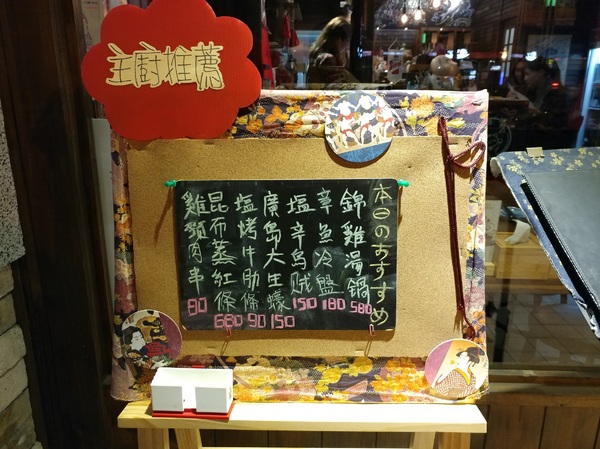 主廚推薦
本日のおすすめ
錦雞湯鍋 580
章魚冷盤 180
塩辛烏賊 150
廣島大生蠔 150
塩烤牛肋條 90
昆布蒸紅條 680
雞頸肉串 80